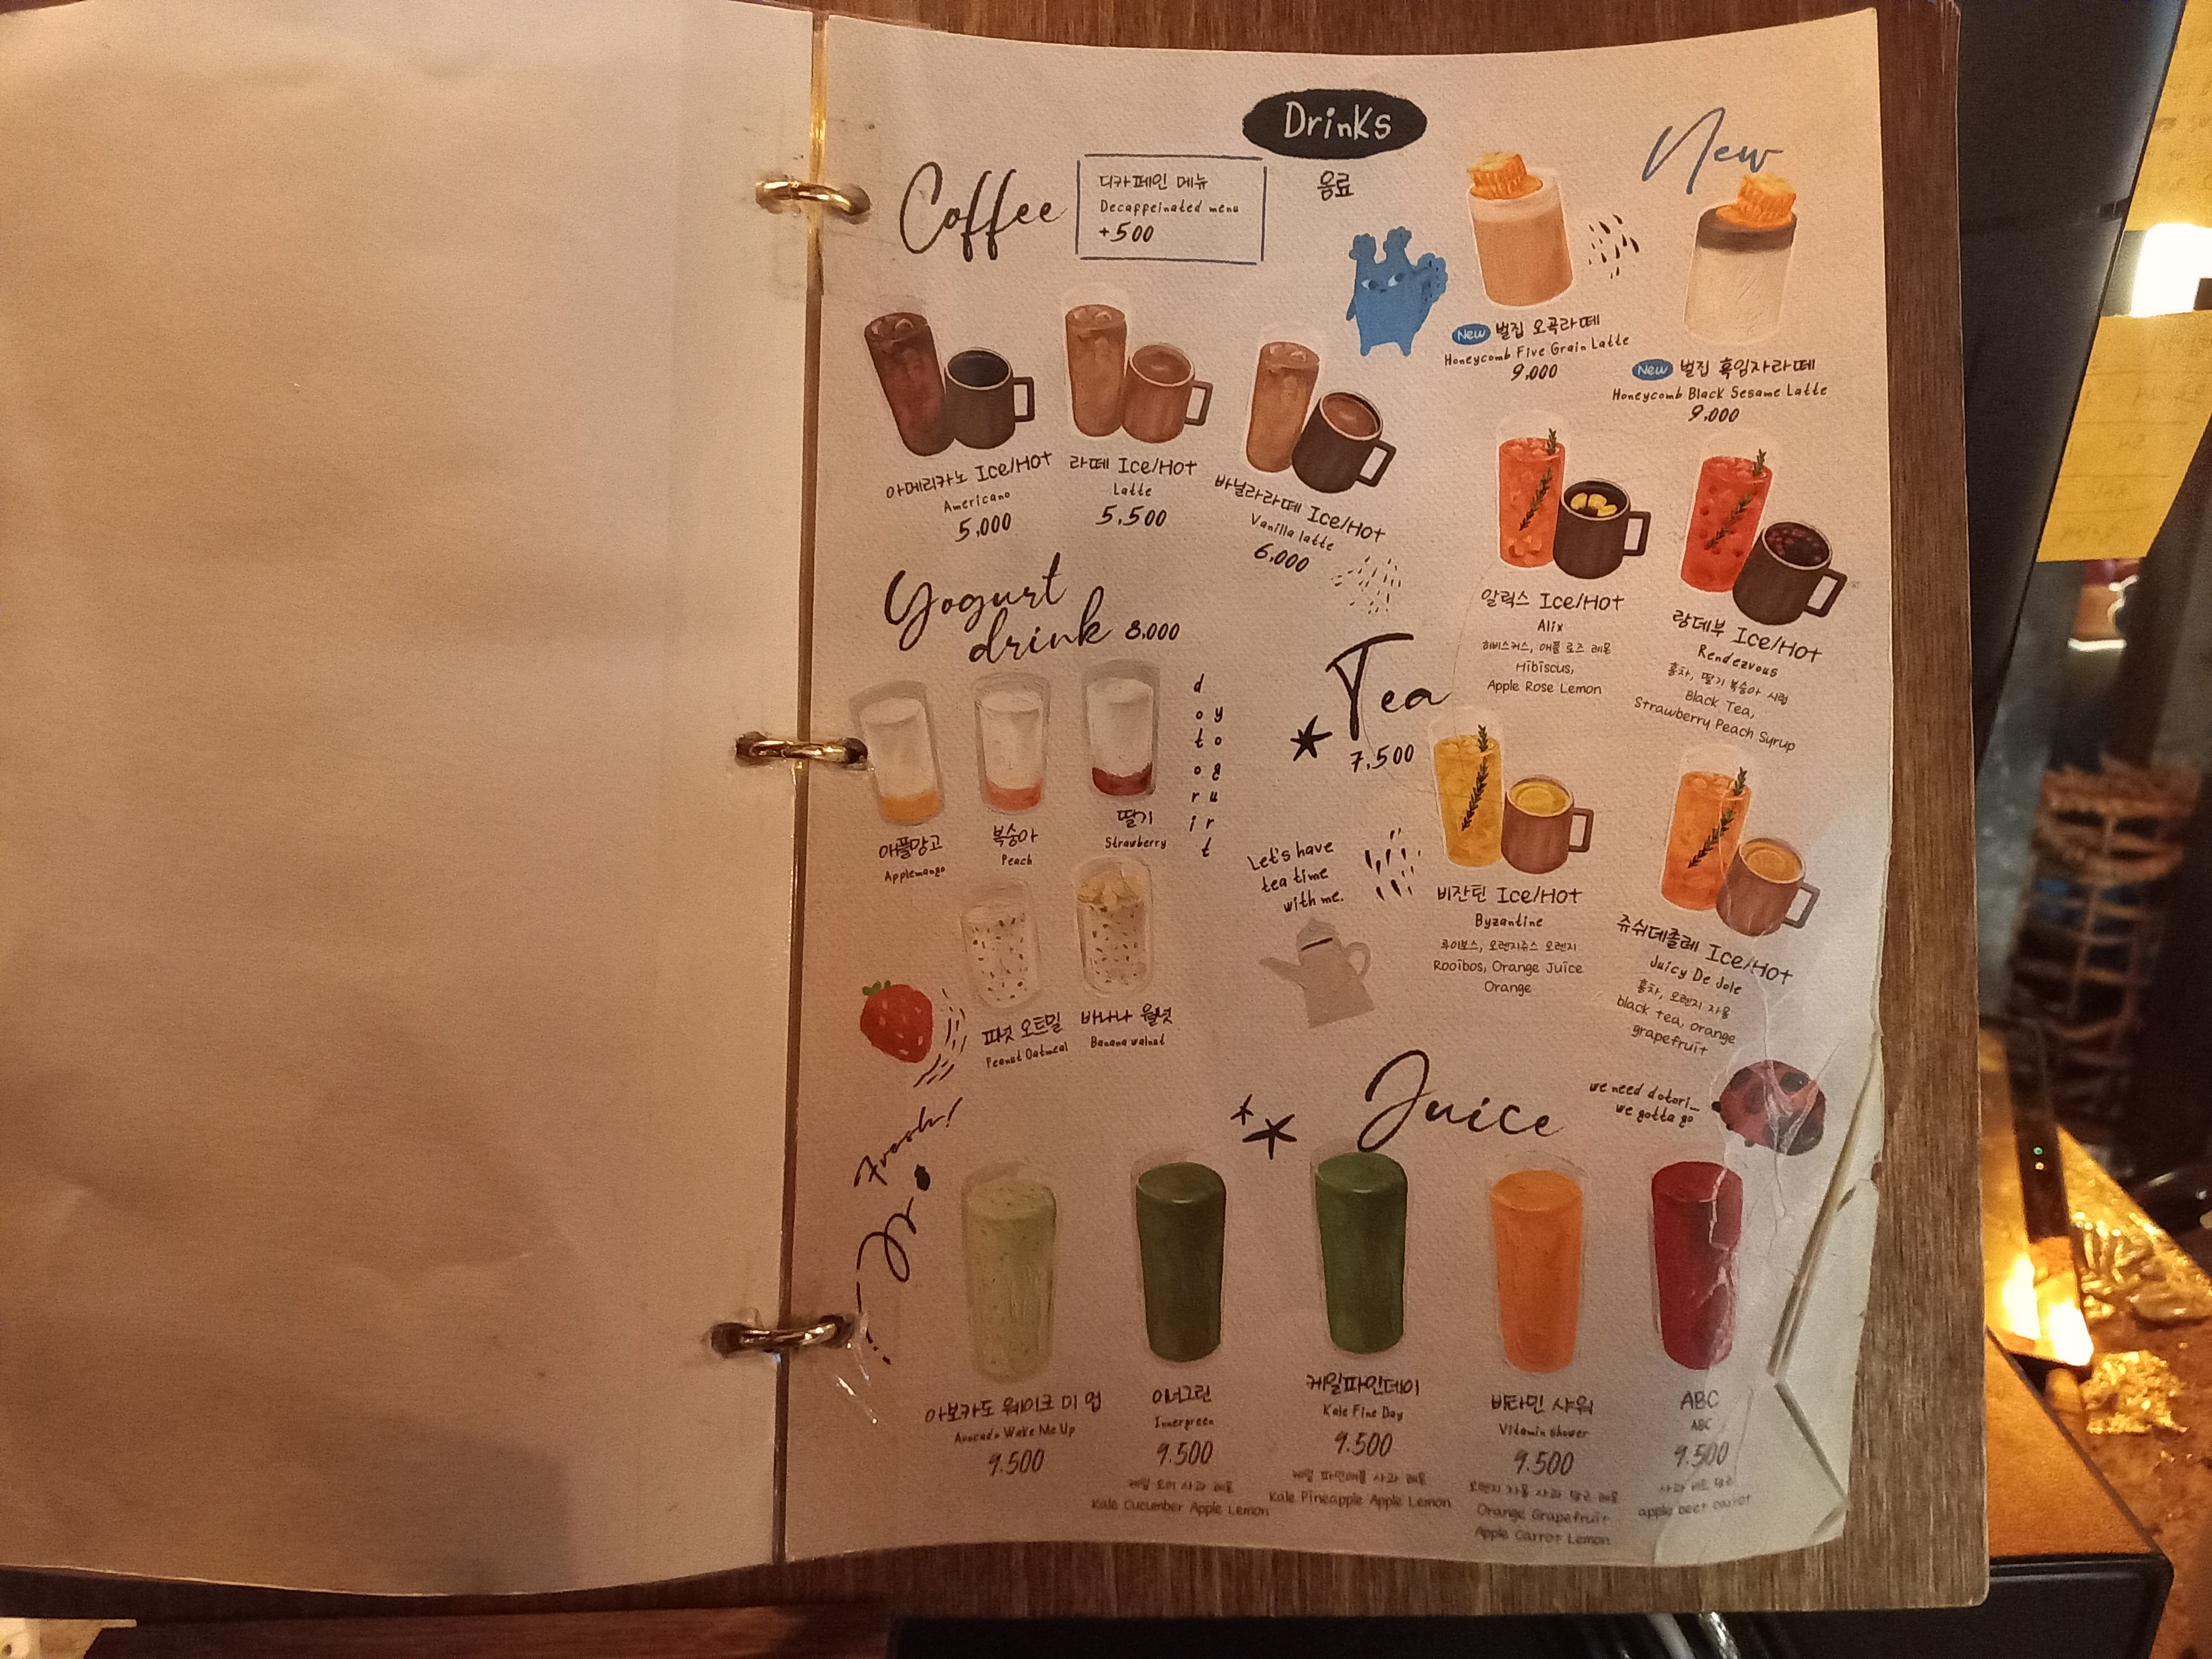 Drinks
음료
Coffee
디카페인 메뉴
Decaffeinated menu
+500
아메리카노 Ice/Hot
Americano
5,000
라떼 Ice/Hot
Latte
5,500
바닐라라떼 Ice/Hot
Vanilla latte
6,000
New
New 벌집 오곡라떼
Honeycomb Five Grain Latte
9,000
New 벌집 흑임자라떼
Honeycomb Black Sesame Latte
9,000
Yogurt
drink 8,000
애플망고
Applemango
복숭아
Peach
딸기
Strawberry
dotori
yogurt
피넛 오트밀
Peanut Oatmeal
바나나 월넛
Banana walnut
Tea
7,500
알릭스 Ice/Hot
Alix
히비스커스, 애플 로즈 레몬
Hibiscus,
Apple Rose Lemon
랑데부 Ice/Hot
Rendezvous
홍차, 딸기 복숭아 시럽
Black Tea,
Strawberry Peach Syrup
Let's have
tea time
with me.
비잔틴 Ice/Hot
Byzantine
루이보스, 오렌지쥬스 오렌지
Rooibos, Orange Juice
Orange
쥬쉬데졸레 Ice/Hot
Juicy De Jole
홍차, 오렌지 자몽
black tea, orange
grapefruit
we need dotori_
we gotta go
Fresh!
Juice
아보카도 웨이크 미 업
Avocado Wake Me Up
9.500
이너그린
Innergreen
9.500
케일 오이 사과 레몬
Kale Cucumber Apple Lemon
케일파인데이
Kale Fine Day
9.500
케일 파인애플 사과 레몬
Kale Pineapple Apple Lemon
비타민 샤워
Vitamin shower
9.500
오렌지 자몽 사과 당근 레몬
Orange Grapefruit
Apple Carrot Lemon
ABC
ABC
9.500
사과 비트 당근
apple beet carrot